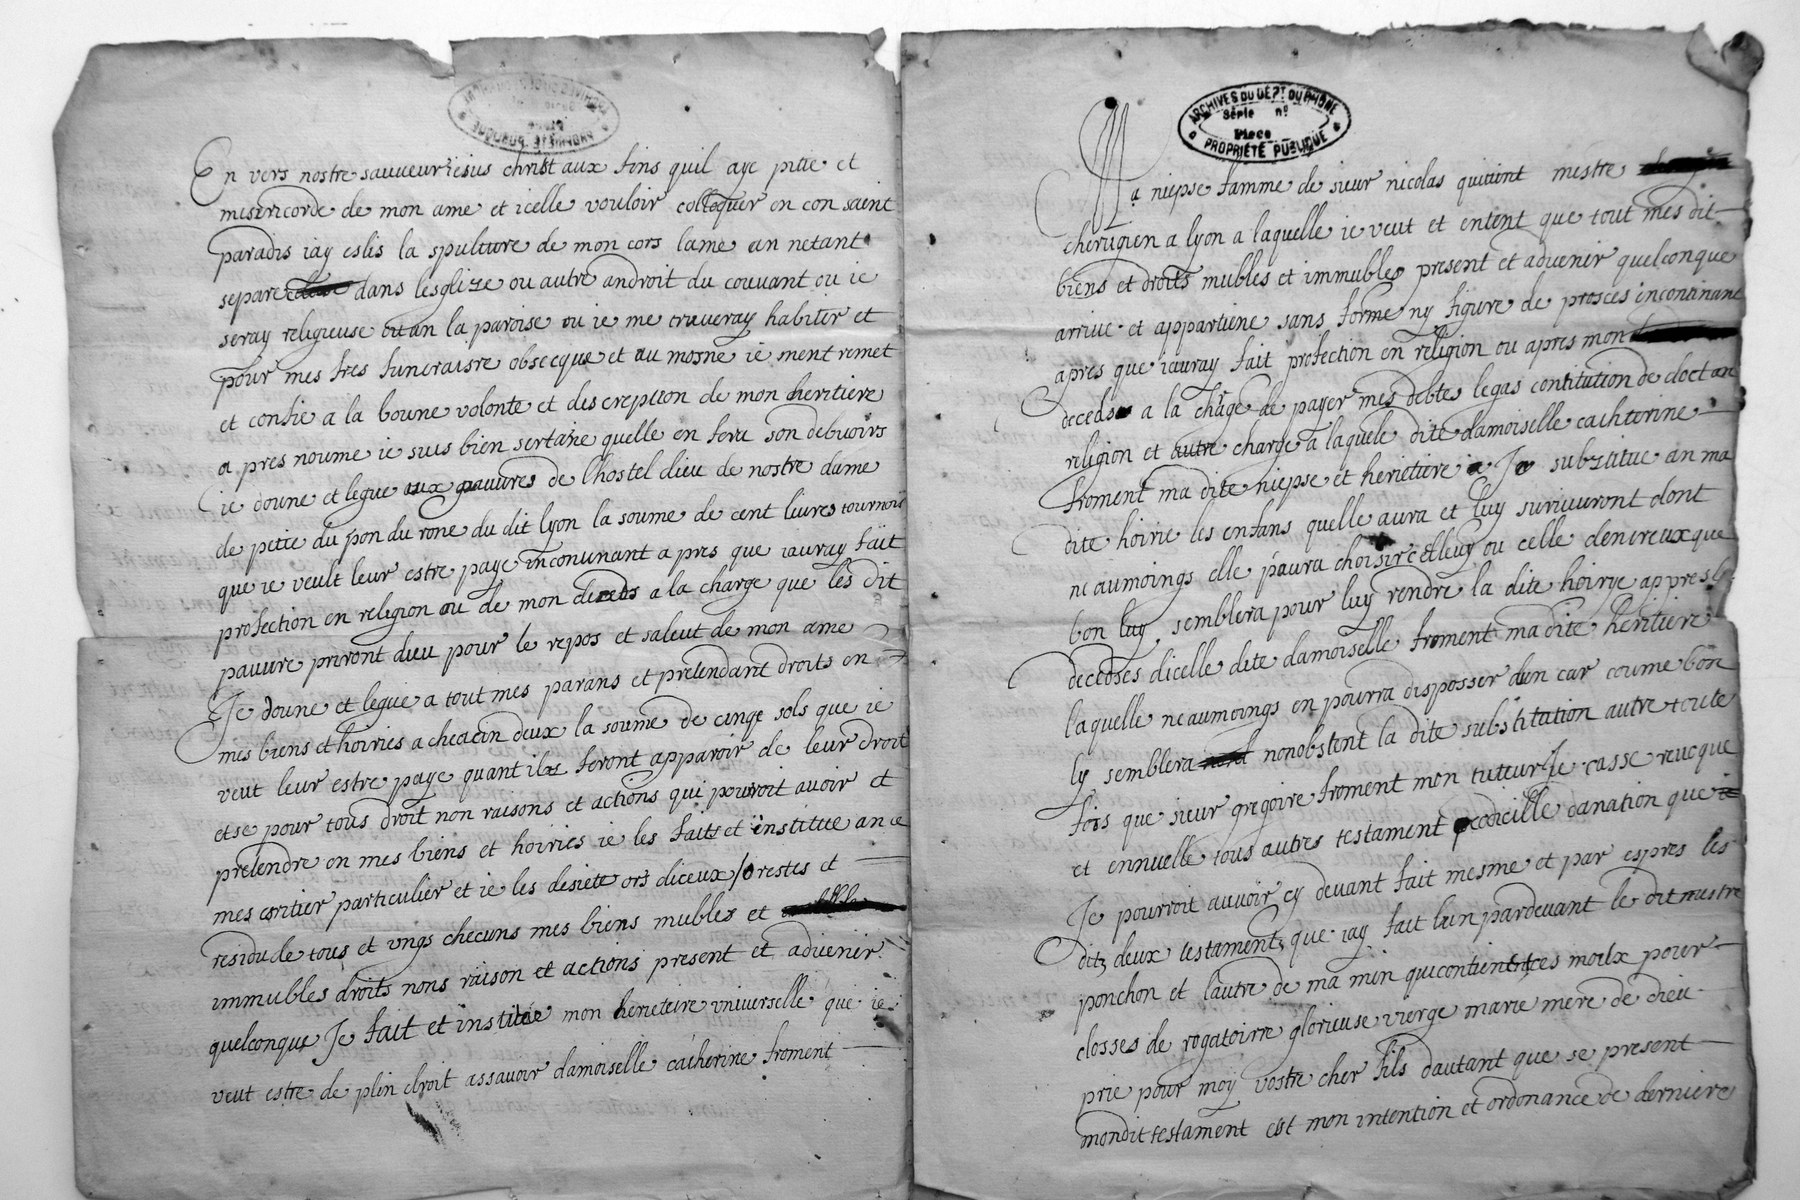 En vers nostre sauveur iesus christ aux fins quil aye pitie et
misericorde de mon ame et icelle vouloir colloquer en con saint
paradis iay eslis la spulture de mon cors lame an netant
separe dans lesglize ou autre androit du couvant ou ie
seray religieuse ou an la paroise ou ie me truveray habiter et
pour mes fres funeraisre obsecque et au mosne ie ment remet
et confie a la boune volonte et descreption de mon heritiere
a pres noume ie suis bien sertaine quelle en fera son debvoirs
ie doune et legue aux pauvres de lhostel dieu de nostre dame
de petie du pon du rone du dit lyon la soume de cent livres tournois
que ie veult leur estre paye incontinant a pres que iauray fait
profection en religion ou de mon deceds a la charge que les dit
pauvre priront dieu pour le repos et saleut de mon ame
Je doune et legue a tout mes parans et pretendant droits en
mes biens et hoiries a cheacun deux la soume de cinqt sols que ie
veut leur estre paye quant ils feront apparoir de leur droit
et se pour tous droit non raisons et actions qui pouroit avoir et
pretendre en mes biens et hoiries ie les faits et institue an ce
mes eritier particulier et ie les desiete ors diceux / restes et
residu de tous et ungs checuns mes biens mubles et
immubles droits nons raison et actions present et advenir
quelconque Je fait et institue mon herieteire universelle que ie
veut estre de plin droit assavoir damoiselle catherine froment
ARCHIVES DU DÉPT DU RHÔNE
Série nº
Pièce
PROPRIÉTÉ PUBLIQUE
Ma niepse famme de sieur nicolas mestre
cherugien a lyon a laquelle ie veut et entent que tout mes dit
biens et droits mubles et immubles present et advenir quelconque
arrive et appartiene sans forme ny figure de prosces incontinant
apres que iauray fait profection en religion ou apres mon
deceds a la charge de payer mes debtes legas contitution de doct an
religion et autre charge a laquele dite damoiselle cachterine
froment ma dite niepse et herietiere Je substitue an ma
dite hoirie les enfans quelle aura et luy survivront dont
neaumoings elle paura choisir celluy ou celle dentreux que
bon luy semblera pour luy rendre la dite hoirye appres le
decedses dicelle dite damoiselle froment ma dite heritiere
laquelle neaumoings en pourra disposser den car coume bon
ly semblera nonobstent la dite substitation autre toute
fois que sieur gregoire froment mon tuteur Je casse revoque
et ennuelle tous autres testament codicille danation que ie
Je pourroit auvoir cy devant fait mesme et par espres les
dits deux testaments que iay fait lun pardevant le dit mestre
ponchon et lautre de ma min qui contient ces mots pour
closses de rogatoirre glorieuse vierge marie mere de dieu
prie pour moy vostre cher fils dautant que se present
mondit testament est mon intention et ordonance de derniere